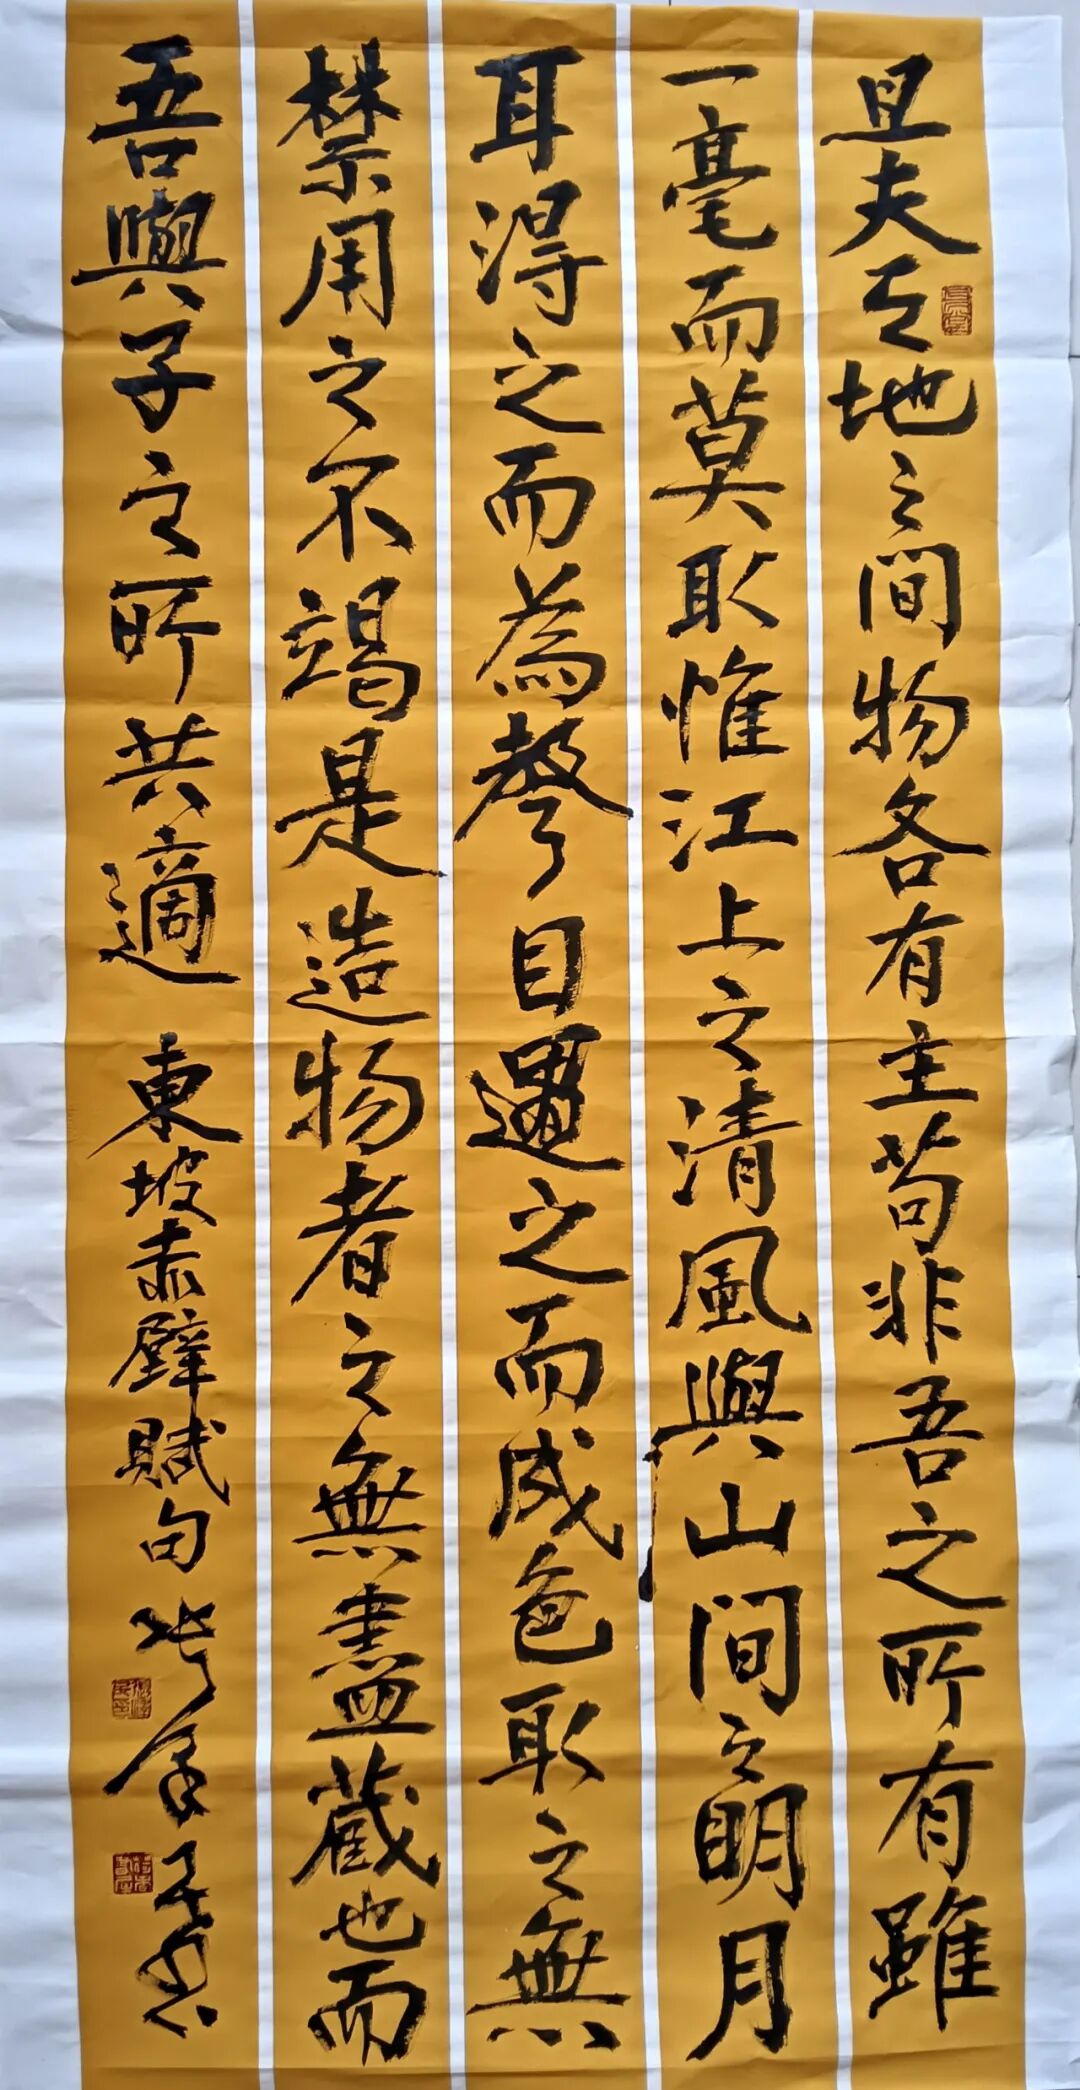 且夫天地之間物各有主苟非吾之所有雖
一毫而莫取惟江上之清風與山間之明月
耳得之而為聲目遇之而成色取之無
禁用之不竭是造物者之無盡藏也而
吾與子之所共適 東坡赤壁賦句